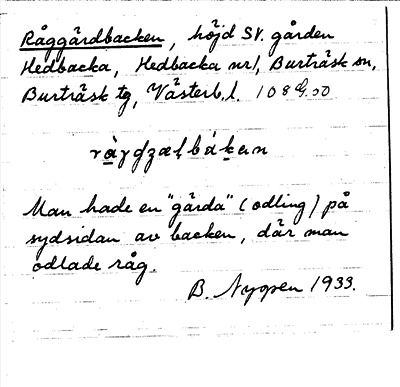 Råggårdbacken, höjd SV. gården
Hedbacka, Hedbacka nr 1, Burträsk sn,
Burträsk tg, Västerb. l. 108
Man hade en "gårda" (odling) på
sydsidan av backen, där man
odlade råg.
B. Nygren 1933.